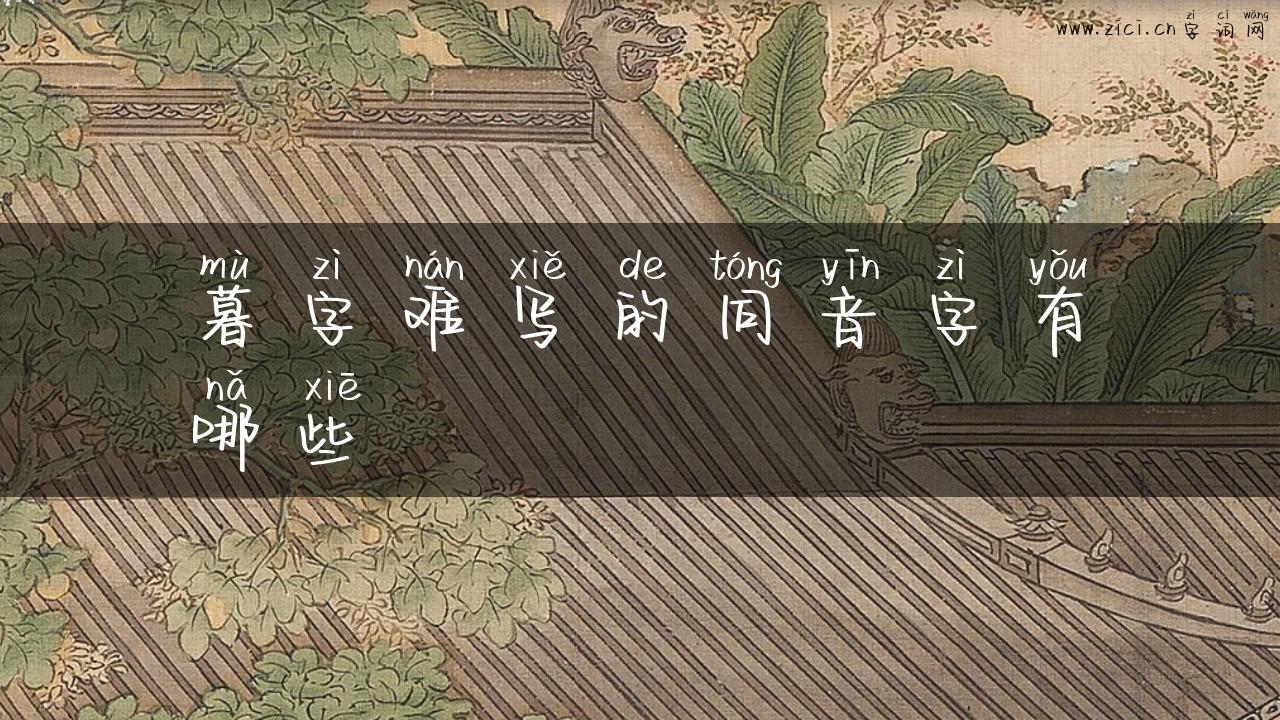 zì cí wǎng
www.zici.cn字词网
mù zì nán xiě de tóng yīn zì yǒu
暮字难写的同音字有
nǎ xiē
哪些